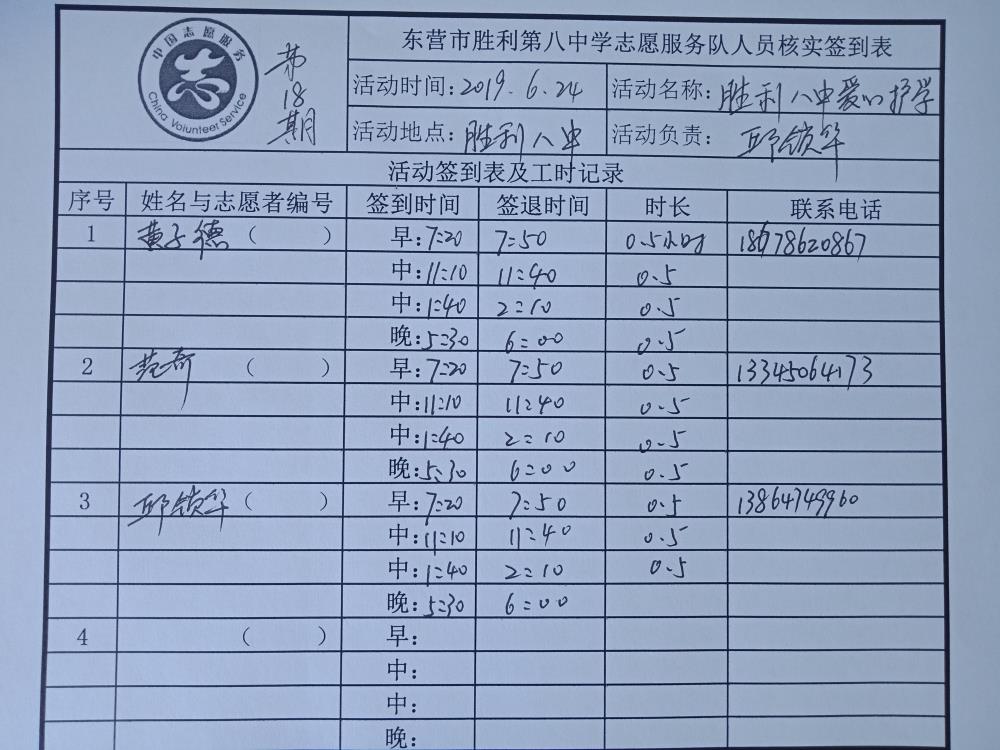 中国志愿服务
China Volunteer Service
第18期
东营市胜利第八中学志愿服务队人员核实签到表
活动时间：2019.6.24 活动名称：胜利八中爱心护学
活动地点：胜利八中 活动负责：邱锁华
活动签到表及工时记录
序号 姓名与志愿者编号 签到时间 签退时间 时长 联系电话
1 黄子德（ ） 早：7:20 7:50 0.5小时 18678620867
中：11:10 11:40 0.5
中：1:40 2:10 0.5
晚：5:30 6:00 0.5
2 范奇 （ ） 早：7:20 7:50 0.5 13345064173
中：11:10 11:40 0.5
中：1:40 2:10 0.5
晚：5:30 6:00 0.5
3 邱锁华（ ） 早：7:20 7:50 0.5 13864749960
中：11:10 11:40 0.5
中：1:40 2:10 0.5
晚：5:30 6:00
4 （ ） 早：
中：
中：
晚：